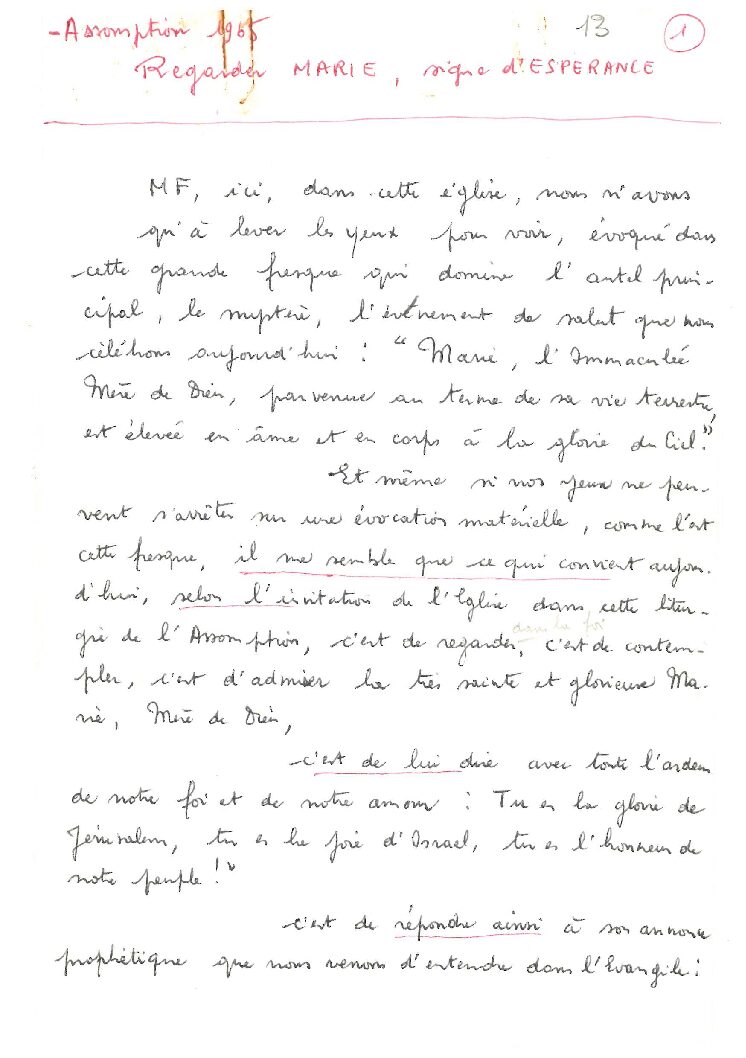 - Assomption 1965 13 1
Regarder MARIE, signe d'ESPERANCE
MF, ici, dans cette église, nous n'avons
qu'à lever les yeux pour voir, évoqué dans
cette grande fresque qui domine l'autel prin-
cipal, le mystère, l'événement de salut que nous
célébrons aujourd'hui : "Marie, l'Immaculée
Mère de Dieu, parvenue au terme de sa vie terrestre,
est élevée en âme et en corps à la gloire du Ciel."
Et même si nos yeux ne peu-
vent s'arrêter sur une évocation matérielle, comme l'est
cette fresque, il me semble que ce qui convient aujour-
d'hui, selon l'invitation de l'Eglise dans cette litur-
dans la foi
gie de l'Assomption, c'est de regarder, c'est de contem-
pler, c'est d'admirer la très sainte et glorieuse Ma-
rie, Mère de Dieu,
c'est de lui dire avec toute l'ardeur
de notre foi et de notre amour : Tu es la gloire de
Jérusalem, tu es la joie d'Israel, tu es l'honneur de
notre peuple !"
c'est de répondre ainsi à son annonce
prophétique que nous venons d'entendre dans l'Evangile :